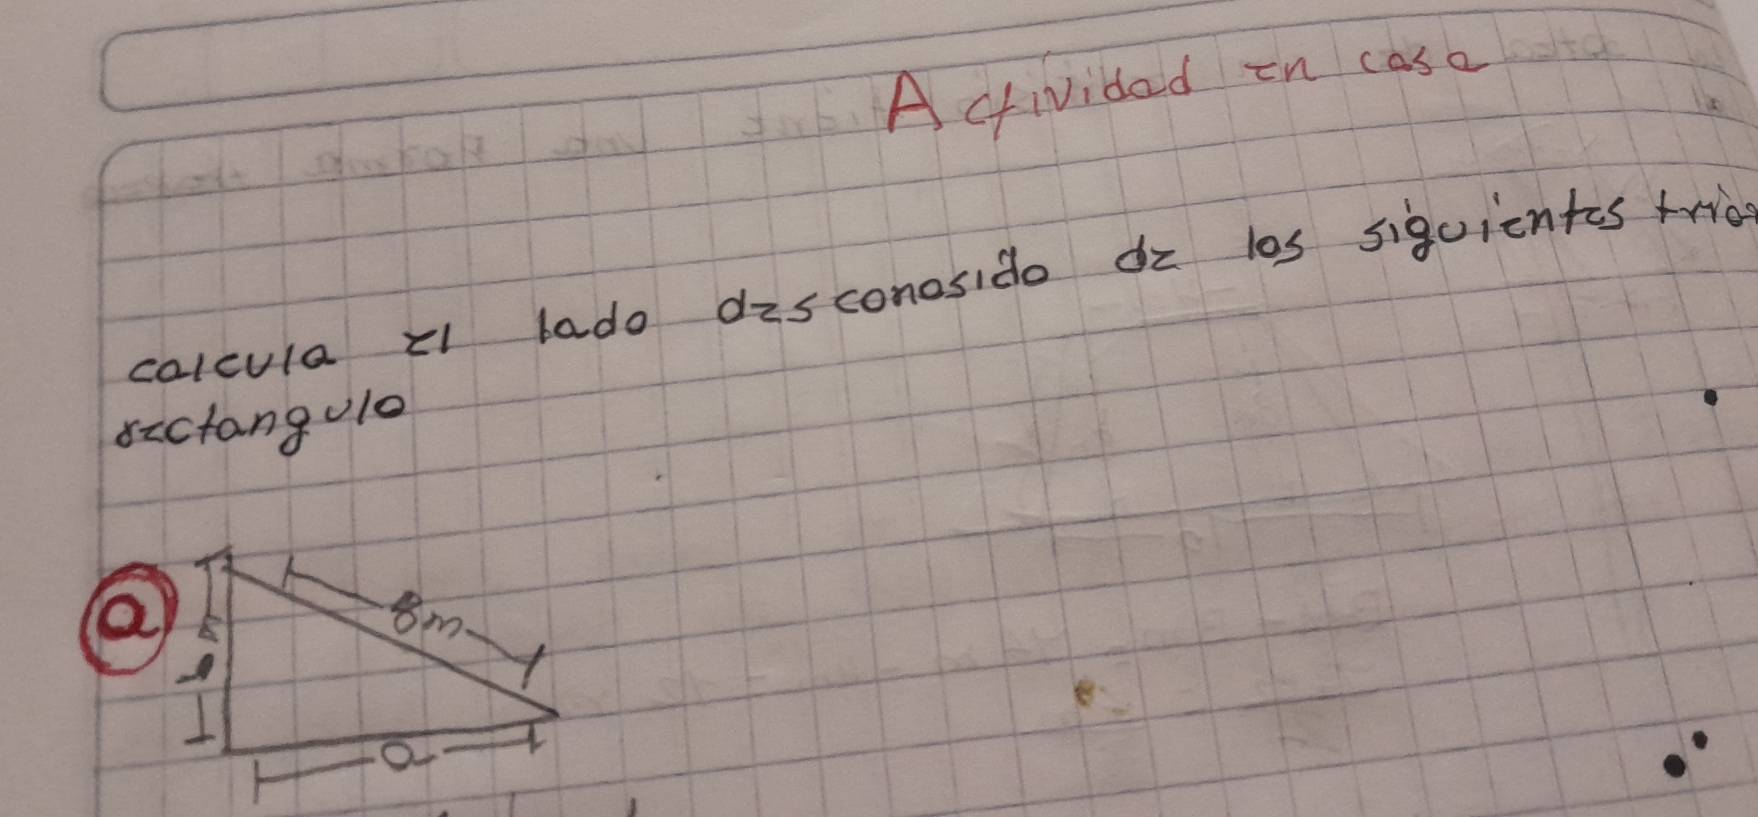 Actividad en casa
calcula el lado desconosido de los siguientes
rectangulo
a
8m
a